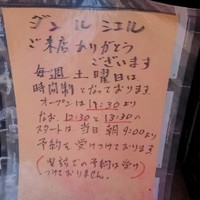 ダンルシエル
ご来店ありがとう
ございます
毎週土曜日は
時間制となっております
オープンは 11:30より
なお 12:30と13:30の
スタートは当日朝9:00より
予約を受けつけております
(電話での予約は受け
つけておりません。)